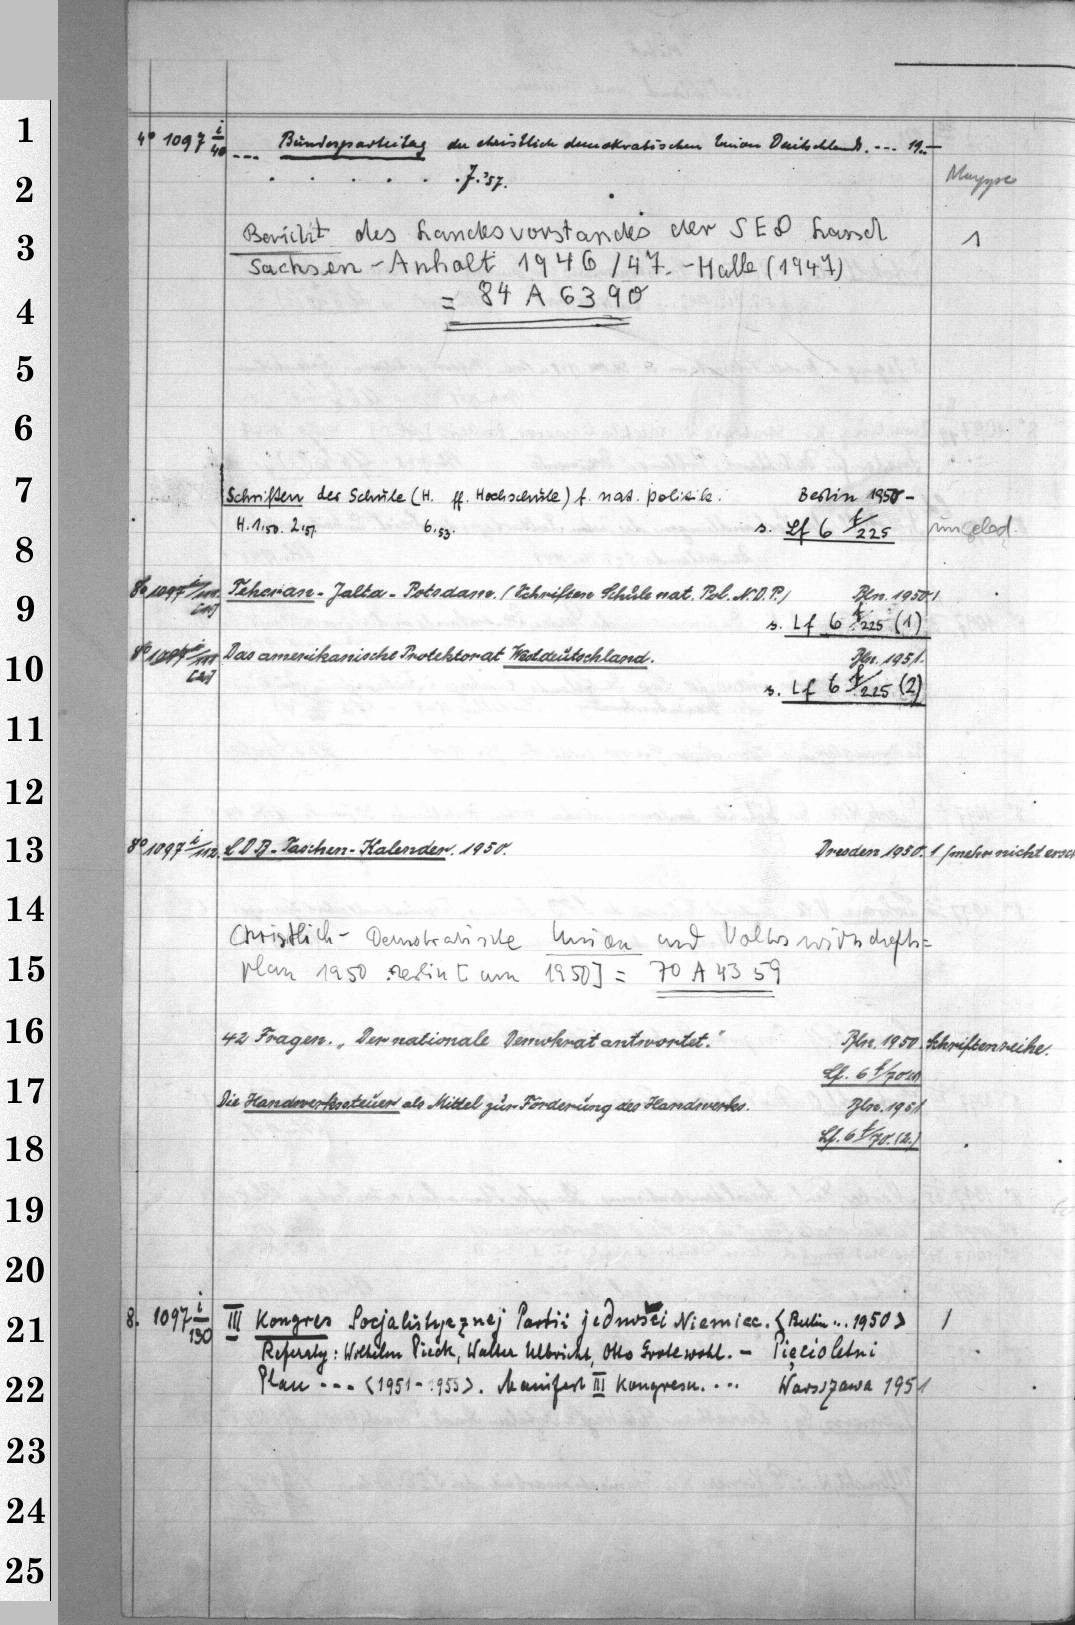 1
2
3
4
5
6
7
8
9
10
11
12
13
14
15
16
17
18
19
20
21
22
23
24
25
4° 1097 i/40 --- Bundesparteitag der christlich demokratischen Union Deutschlands. --- 19.—
. . . . . . 7.'57. Mappe
Bericht des Landesvorstandes der SED Land 1
Sachsen-Anhalt 1946/47. - Halle (1947)
= 84 A 6390
Schriften der Schule (H. ff. Hochschule) f. nat. politik. Berlin 1950-
H. 1,50. 2,51. 6,53. s. Lf 6 f/225 ungebd.
8° 1097 i/111. Teheran - Jalta - Potsdam. (Schriften Schule nat. Pol. N.D.P.) Bln. 1950. 1
s. Lf 6 f/225 (1)
8° 1097 i/111 Das amerikanische Protektorat Westdeutschland. Bln. 1951.
s. Lf 6 f/225 (2)
8° 1097 i/112. LDP-Taschen-Kalender. 1950. Dresden 1950. 1 (mehr nicht ersch
Christlich-Demokratische Union und Volkswirtschafts=
plan 1950 Berlin [um 1950] = 70 A 4359
42 Fragen. „Der nationale Demokrat antwortet." Bln. 1950. Schriftenreihe.
Lf. 6 f/70(1)
Die Handwerkssteuer als Mittel zur Förderung des Handwerks. Bln. 1951
Lf. 6 f/70. (2.)
8. 1097 i/130 III Kongres Socjalistycznej Partii jedności Niemiec. <Berlin ... 1950> 1
Referaty: Wilhelm Pieck, Walter Ulbricht, Otto Grotewohl. - Pięcioletni
Plan --- <1951-1955>. Manifest III Kongresu. ... Warszawa 1951